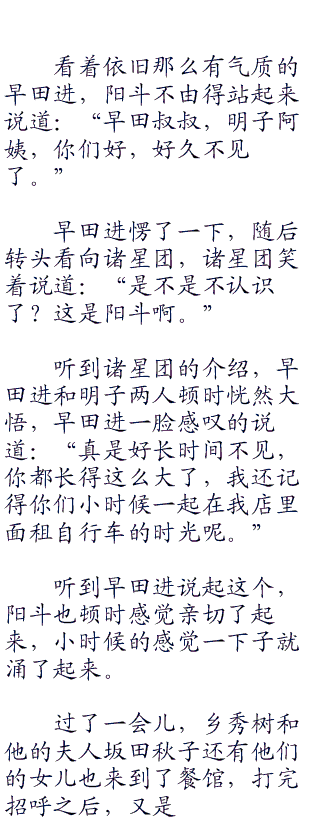 看着依旧那么有气质的
早田进，阳斗不由得站起来
说道：“早田叔叔，明子阿
姨，你们好，好久不见
了。”
早田进愣了一下，随后
转头看向诸星团，诸星团笑
着说道：“是不是不认识
了？这是阳斗啊。”
听到诸星团的介绍，早
田进和明子两人顿时恍然大
悟，早田进一脸感叹的说
道：“真是好长时间不见，
你都长得这么大了，我还记
得你们小时候一起在我店里
面租自行车的时光呢。”
听到早田进说起这个，
阳斗也顿时感觉亲切了起
来，小时候的感觉一下子就
涌了起来。
过了一会儿，乡秀树和
他的夫人坂田秋子还有他们
的女儿也来到了餐馆，打完
招呼之后，又是